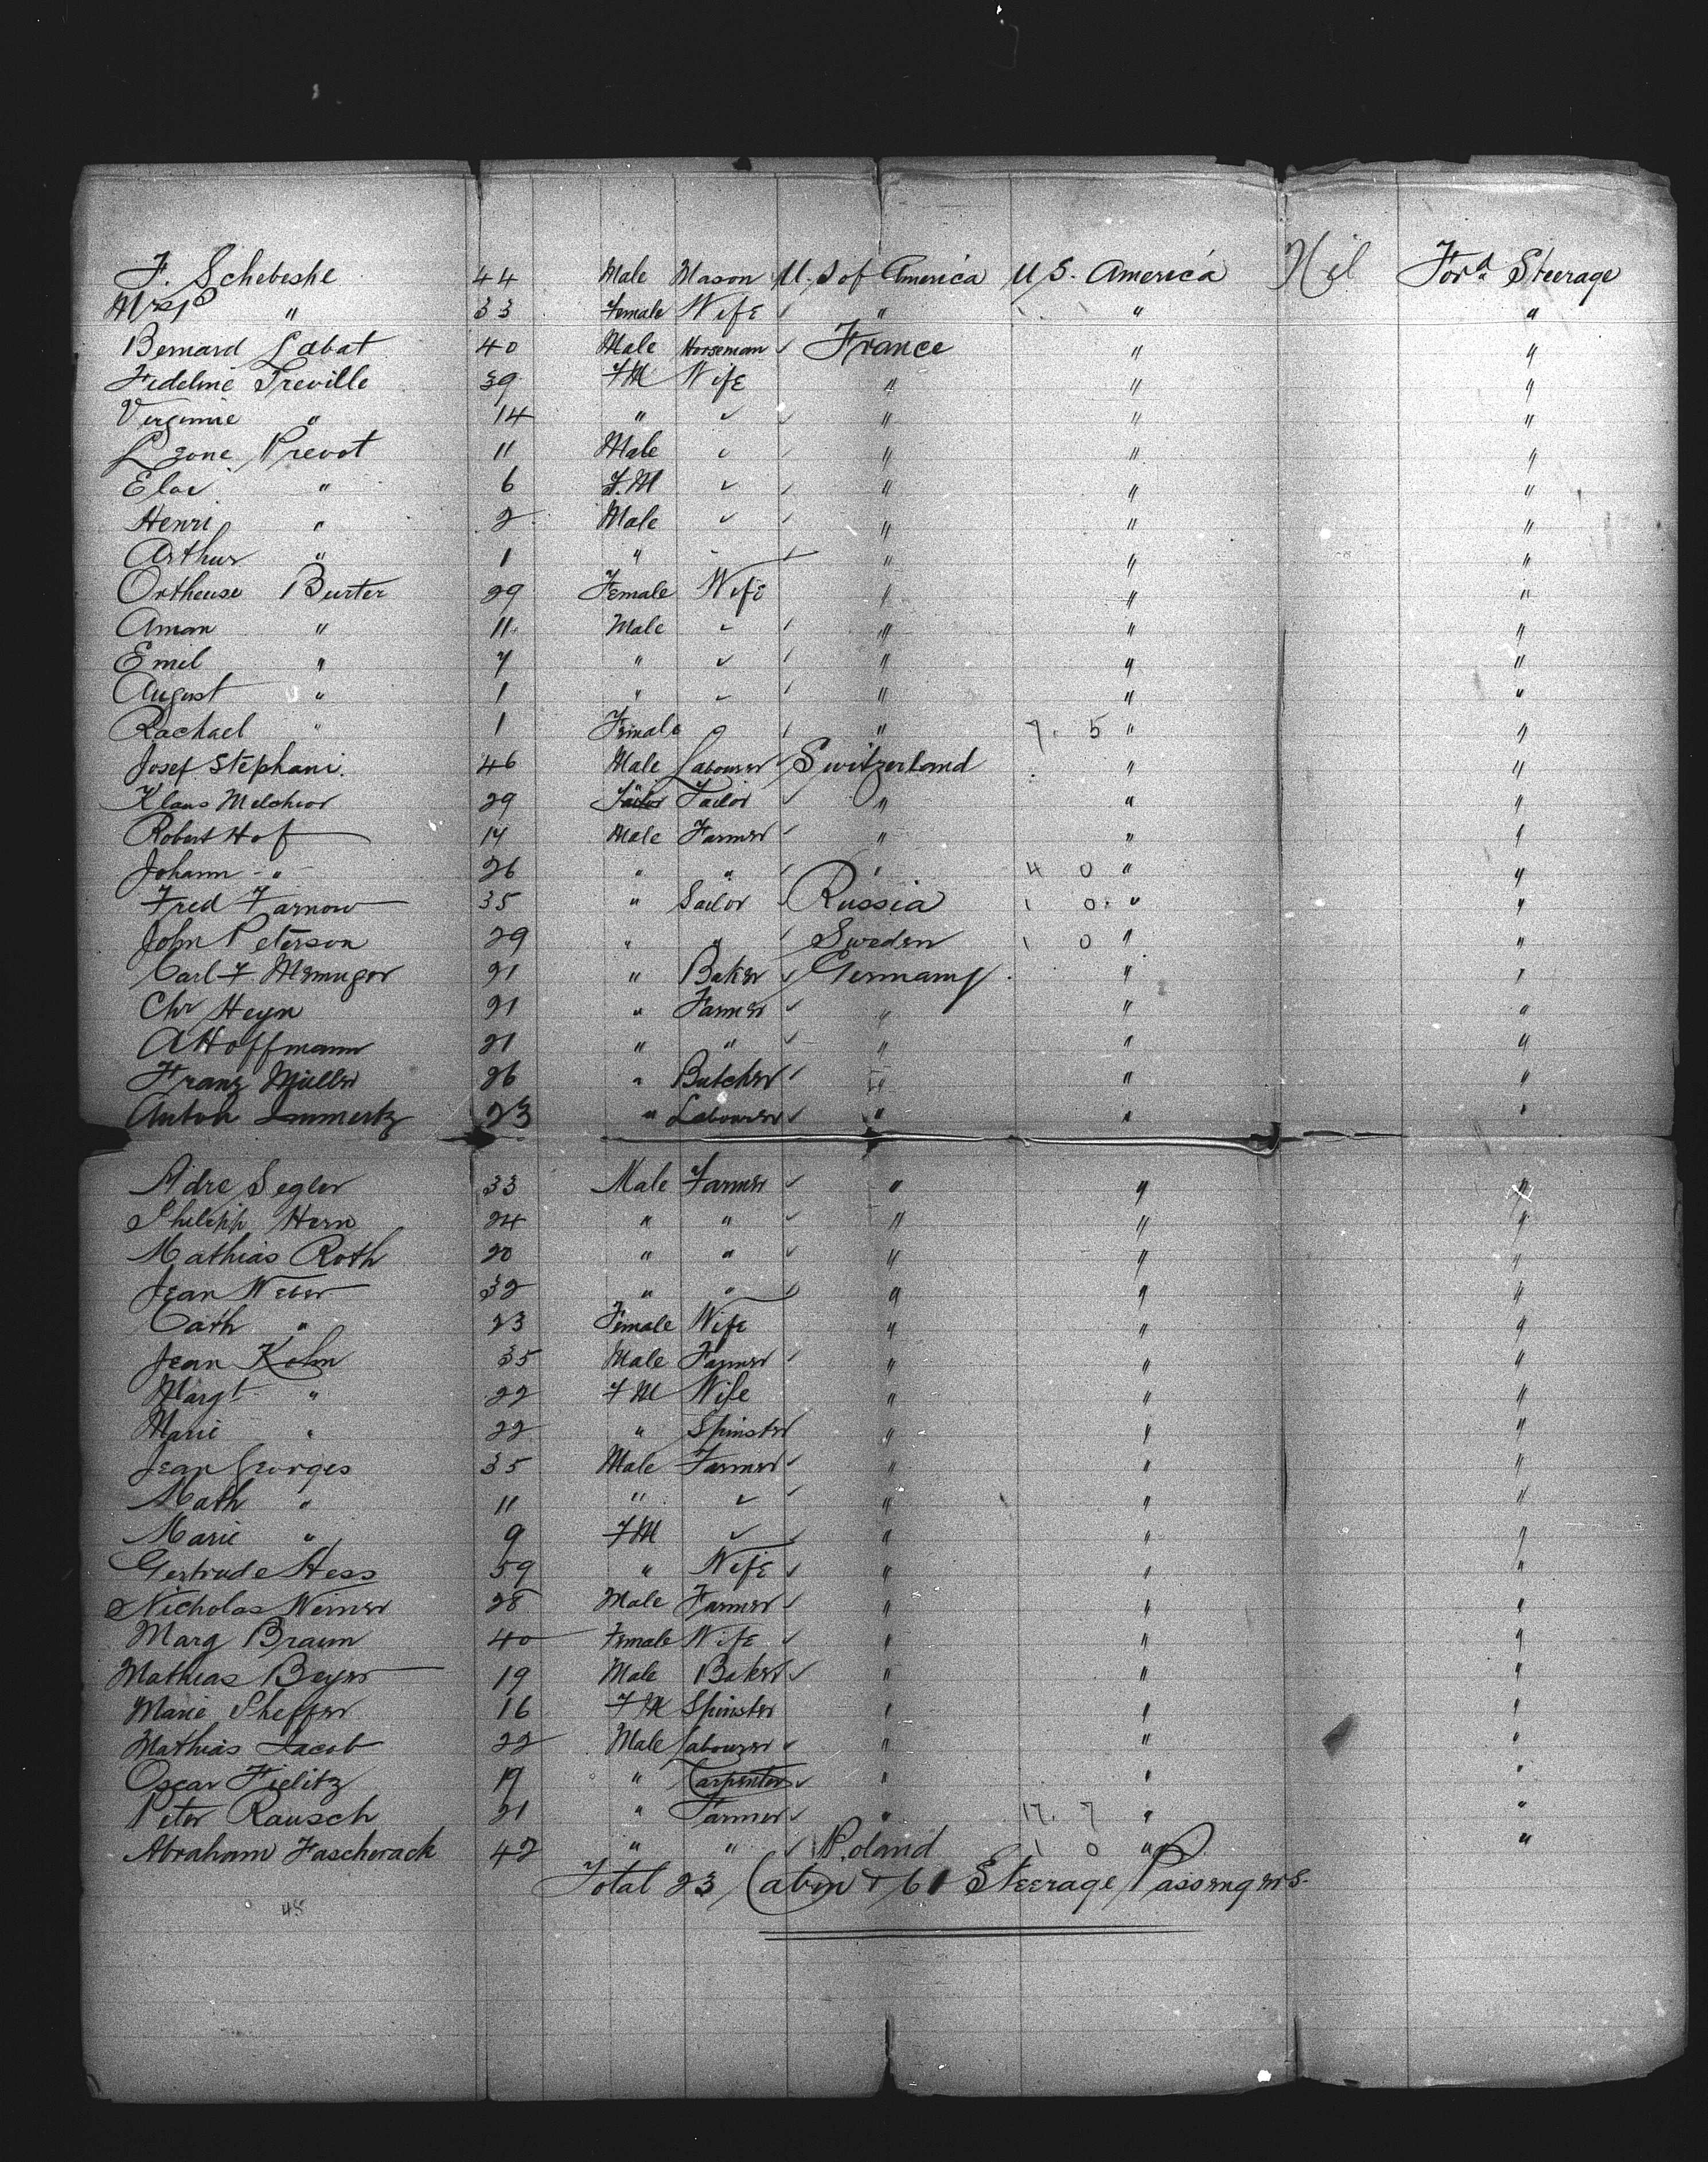 F. Schebeshe 44 Male Mason U. S of America U S. America Nil Ford Steerage
Mrs " 33 Female Wife " " "
Bernard Labat 40 Male Horseman France " "
Fideline Treville 39 FM Wife " " "
Virginnie " 14 " " " "
Leone Prevot 11 Male " " "
Eloi " 6 F.M " " "
Henri " 2 Male " " "
Arthur " 1 " " " "
Ortheuse Burter 29 Female Wife " " "
Aman " 11 Male " " "
Emil " 7 " " " "
August " 1 " " " "
Rachael " 1 Female " 7. 5 " "
Josef Stephani. 46 Male Labourer Switzerland " "
Klaus Melchior 29 " Tailor " " "
Robert Hof 14 Male Farmer " " "
Johann " 26 " " " 4 0 " "
Fred Farnow 35 " Sailor Russia 1 0 " "
John Peterson 29 " " Sweden 1 0 " "
Carl F 21 " Baker Germany " "
Chr Heyn 21 " Farmer " " "
A Hoffmann 21 " " " " "
Franz Müller 26 " Butcher " " "
Anton Immertz 23 " Labourer " " "
Adre Segler 33 Male Farmer " " "
Philipp Horn 24 " " " " "
Mathias Roth 20 " " " " "
Jean Weber 32 " " " " "
Cath " 23 Female Wife " " "
Jean Kohn 35 Male Farmer " " "
Margt " 22 FM Wife " " "
Marie " 22 " Spinster " " "
Jean Georges 35 Male Farmer " " "
Math " 11 " " " "
Marie " 9 FM " " "
Gertrude Hess 59 " Wife " " "
Nicholas Weiner 28 Male Farmer " " "
Marg Braun 40 Female Wife " " "
Mathias Beyer 19 Male Baker " " "
Marie Sheffer 16 FM Spinster " " "
Mathias Jacob 22 Male Labourer " " "
Oscar Fielitz 19 " Carpenter " " "
Peter Rausch 21 " Farmer " 17. 7 " "
Abraham Fascherack 42 " " Poland 1 0 " "
Total 23 Cabin & 61 Steerage Passengers.
45